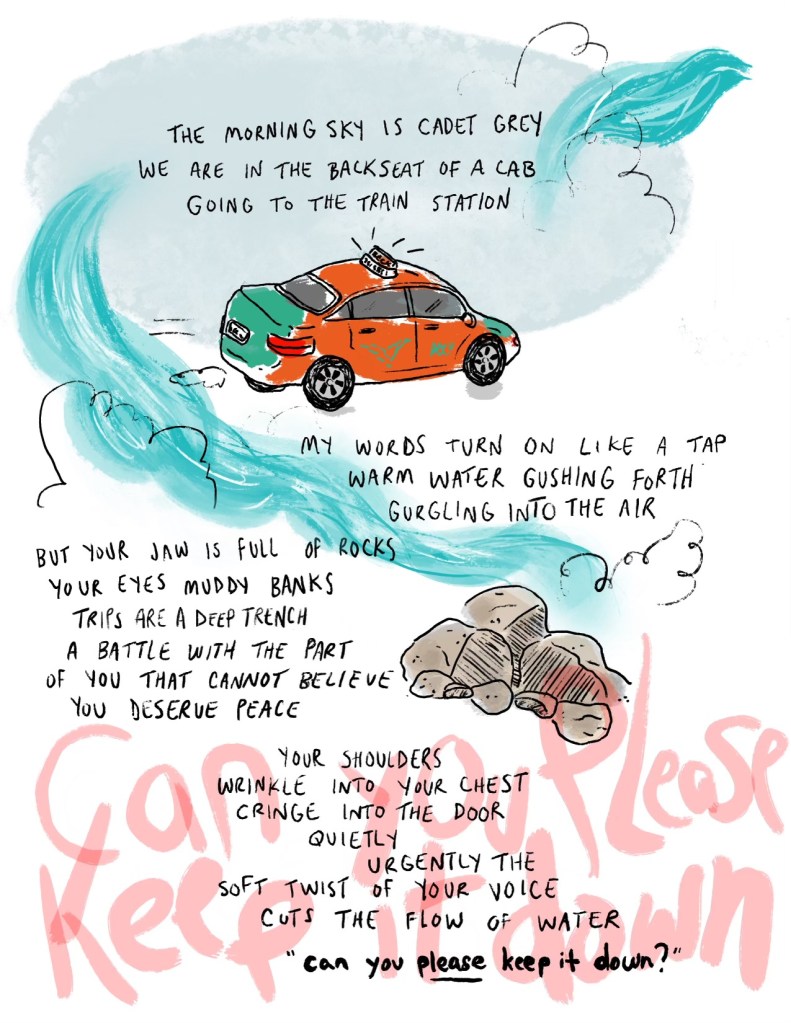 THE MORNING SKY IS CADET GREY
WE ARE IN THE BACKSEAT OF A CAB
GOING TO THE TRAIN STATION
MY WORDS TURN ON LIKE A TAP
WARM WATER GUSHING FORTH
GURGLING INTO THE AIR
BUT YOUR JAW IS FULL OF ROCKS
YOUR EYES MUDDY BANKS
TRIPS ARE A DEEP TRENCH
A BATTLE WITH THE PART
OF YOU THAT CANNOT BELIEVE
YOU DESERVE PEACE
Can you PLease
Keep it down
YOUR SHOULDERS
WRINKLE INTO YOUR CHEST
CRINGE INTO THE DOOR
QUIETLY
URGENTLY THE
SOFT TWIST OF YOUR VOICE
CUTS THE FLOW OF WATER
"can you please keep it down?"